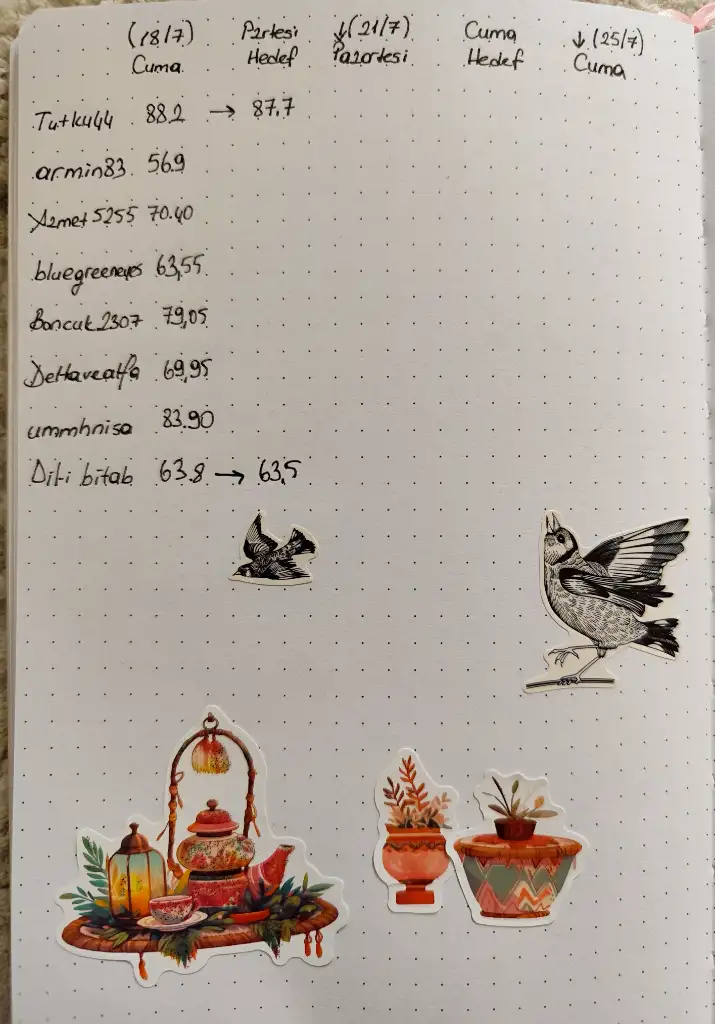 (18/7) Cuma Pzrtesi Hedef ↓(21/7) Pazartesi Cuma Hedef ↓(25/7) Cuma
Tutku44 88.2 → 87.7
armin83 56.9
Azmet5255 70.40
bluegreeneyes 63,55
Boncuk2307 79,05
Deltavealfa 69,95
ummhnisa 83.90
Dili bitab 63.8 → 63,5